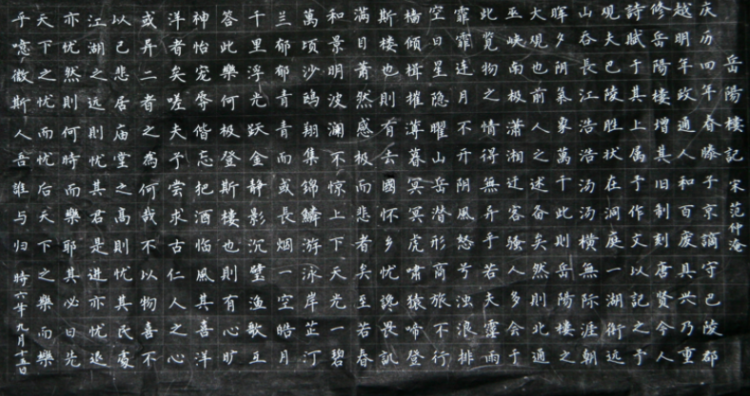 岳陽樓記 宋 范仲淹
庆历四年春滕子京謫守巴陵郡
越明年政通人和百废具興乃重
修岳陽樓增其旧制刻唐賢今人
詩賦于其上属予作文以記之予
观夫巴陵勝狀在洞庭一湖銜远
山吞長江浩浩汤汤橫無际涯朝
暉夕阴氣象萬千此則岳陽樓之
大观也前人之述备矣然則北通
巫峽南极瀟湘迁客騷人多会于
此览物之情得無异乎若夫霪雨
霏霏連月不开阴風怒号浊浪排
空日星隐曜山岳潜形商旅不行
樯倾楫摧薄暮冥冥虎嘯猿啼登
斯樓也則有去國怀乡忧讒畏訊
滿目萧然感极而悲者矣至若春
和景明波瀾不惊上下天光一碧
萬頃沙鸥翔集錦鱗游泳岸芷汀
兰郁郁青青而或長烟一空皓月
千里浮光跃金静影沉璧漁歌互
答此樂何极登斯樓也則有心旷
神怡宠辱偕忘把酒临風其喜洋
洋者矣嗟夫予尝求古仁人之心
或异二者之為何哉不以物喜不
以己悲居庙堂之高則忧其民處
江湖之远則忧其君是進亦忧退
亦忧然則何時而樂耶其必曰先
天下之忧而忧后天下之樂而樂
乎噫微斯人吾誰与归 時六年九月十五日